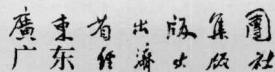 廣東省出版集團
广东經濟出版社